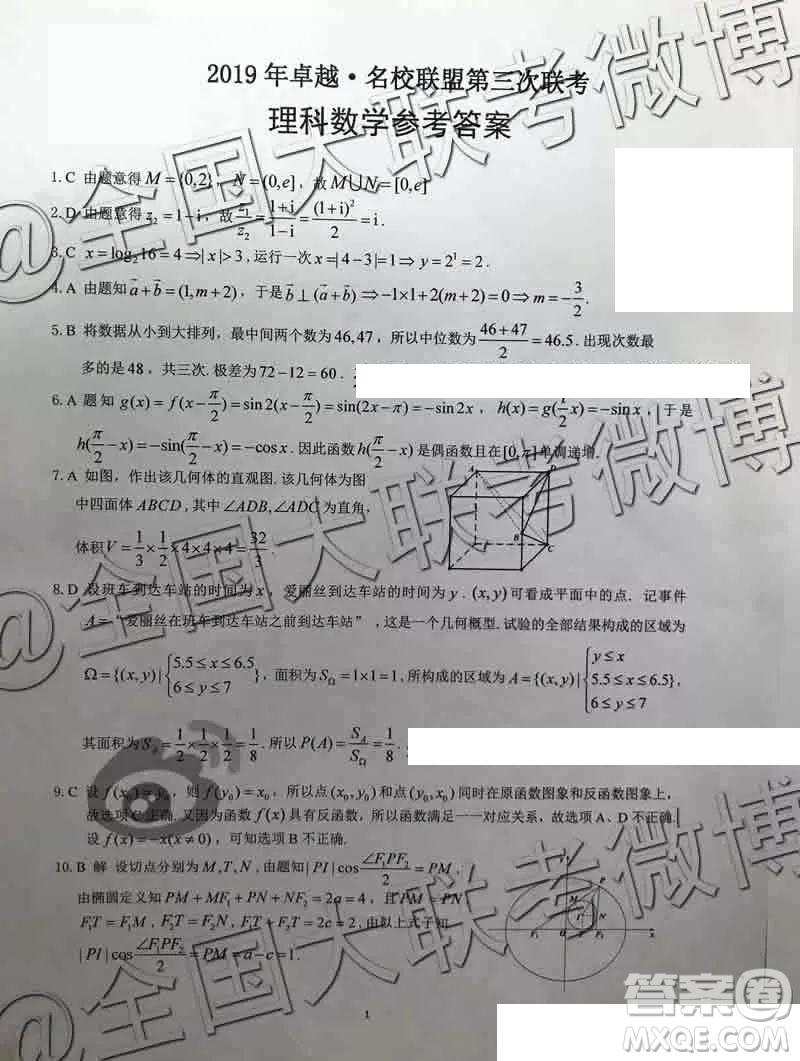 2019 年卓越·名校联盟第三次联考
理科数学参考答案
1. C 由题意得 M = {0,2}, N = (0,e], 故 M∪N = [0,e]
2. D 由题意得 z₂ = 1-i, 故 z₁/z₂ = (1+i)/(1-i) = (1+i)²/2 = i.
3. C x = log₂16 = 4 ⇒ |x| > 3, 运行一次 x = |4-3| = 1 ⇒ y = 2¹ = 2.
4. A 由题知 a⃗+b⃗ = (1, m+2), 于是 b⃗ ⊥ (a⃗+b⃗) ⇒ -1×1+2(m+2) = 0 ⇒ m = -3/2.
5. B 将数据从小到大排列, 最中间两个数为 46,47, 所以中位数为 (46+47)/2 = 46.5. 出现次数最
多的是 48, 共三次. 极差为 72-12 = 60.
6. A 题知 g(x) = f(x-π/2) = sin2(x-π/2) = sin(2x-π) = -sin2x, h(x) = g(1/2 x) = -sin x, 于是
h(π/2-x) = -sin(π/2-x) = -cos x. 因此函数 h(π/2-x) 是偶函数且在 [0,π] 单调递增.
7. A 如图, 作出该几何体的直观图. 该几何体为图
中四面体 ABCD, 其中 ∠ADB, ∠ADC 为直角,
体积 V = 1/3 × 1/2 × 4×4×4 = 32/3.
A
D
B
C
8. D 设班车到达车站的时间为 x, 爱丽丝到达车站的时间为 y. (x,y) 可看成平面中的点. 记事件
A = "爱丽丝在班车到达车站之前到达车站", 这是一个几何概型. 试验的全部结果构成的区域为
Ω = {(x,y)| { 5.5≤x≤6.5 6≤y≤7 }, 面积为 S_Ω = 1×1 = 1, 所构成的区域为 A = {(x,y)| { y≤x 5.5≤x≤6.5 6≤y≤7 },
其面积为 S_A = 1/2 × 1/2 × 1/2 = 1/8. 所以 P(A) = S_A/S_Ω = 1/8
9. C 设 f(x₀) = y₀, 则 f(y₀) = x₀, 所以点 (x₀,y₀) 和点 (y₀,x₀) 同时在原函数图象和反函数图象上,
故选项 C 正确. 又因为函数 f(x) 具有反函数, 所以函数满足一一对应关系, 故选项 A、D 不正确.
设 f(x) = -x(x≠0), 可知选项 B 不正确.
10. B 解 设切点分别为 M,T,N, 由题知 |PI|cos ∠F₁PF₂/2 = PM,
由椭圆定义知 PM+MF₁+PN+NF₂ = 2a = 4, 且 PM = PN
F₁T = F₁M, F₂T = F₂N, F₁T+F₂T = 2c = 2, 由以上式子知
|PI|cos ∠F₁PF₂/2 = PM = a-c = 1.
1
@全国大联考微博
@全国大联考微博
@全国大联考微博
答案卷
MXQE.COM